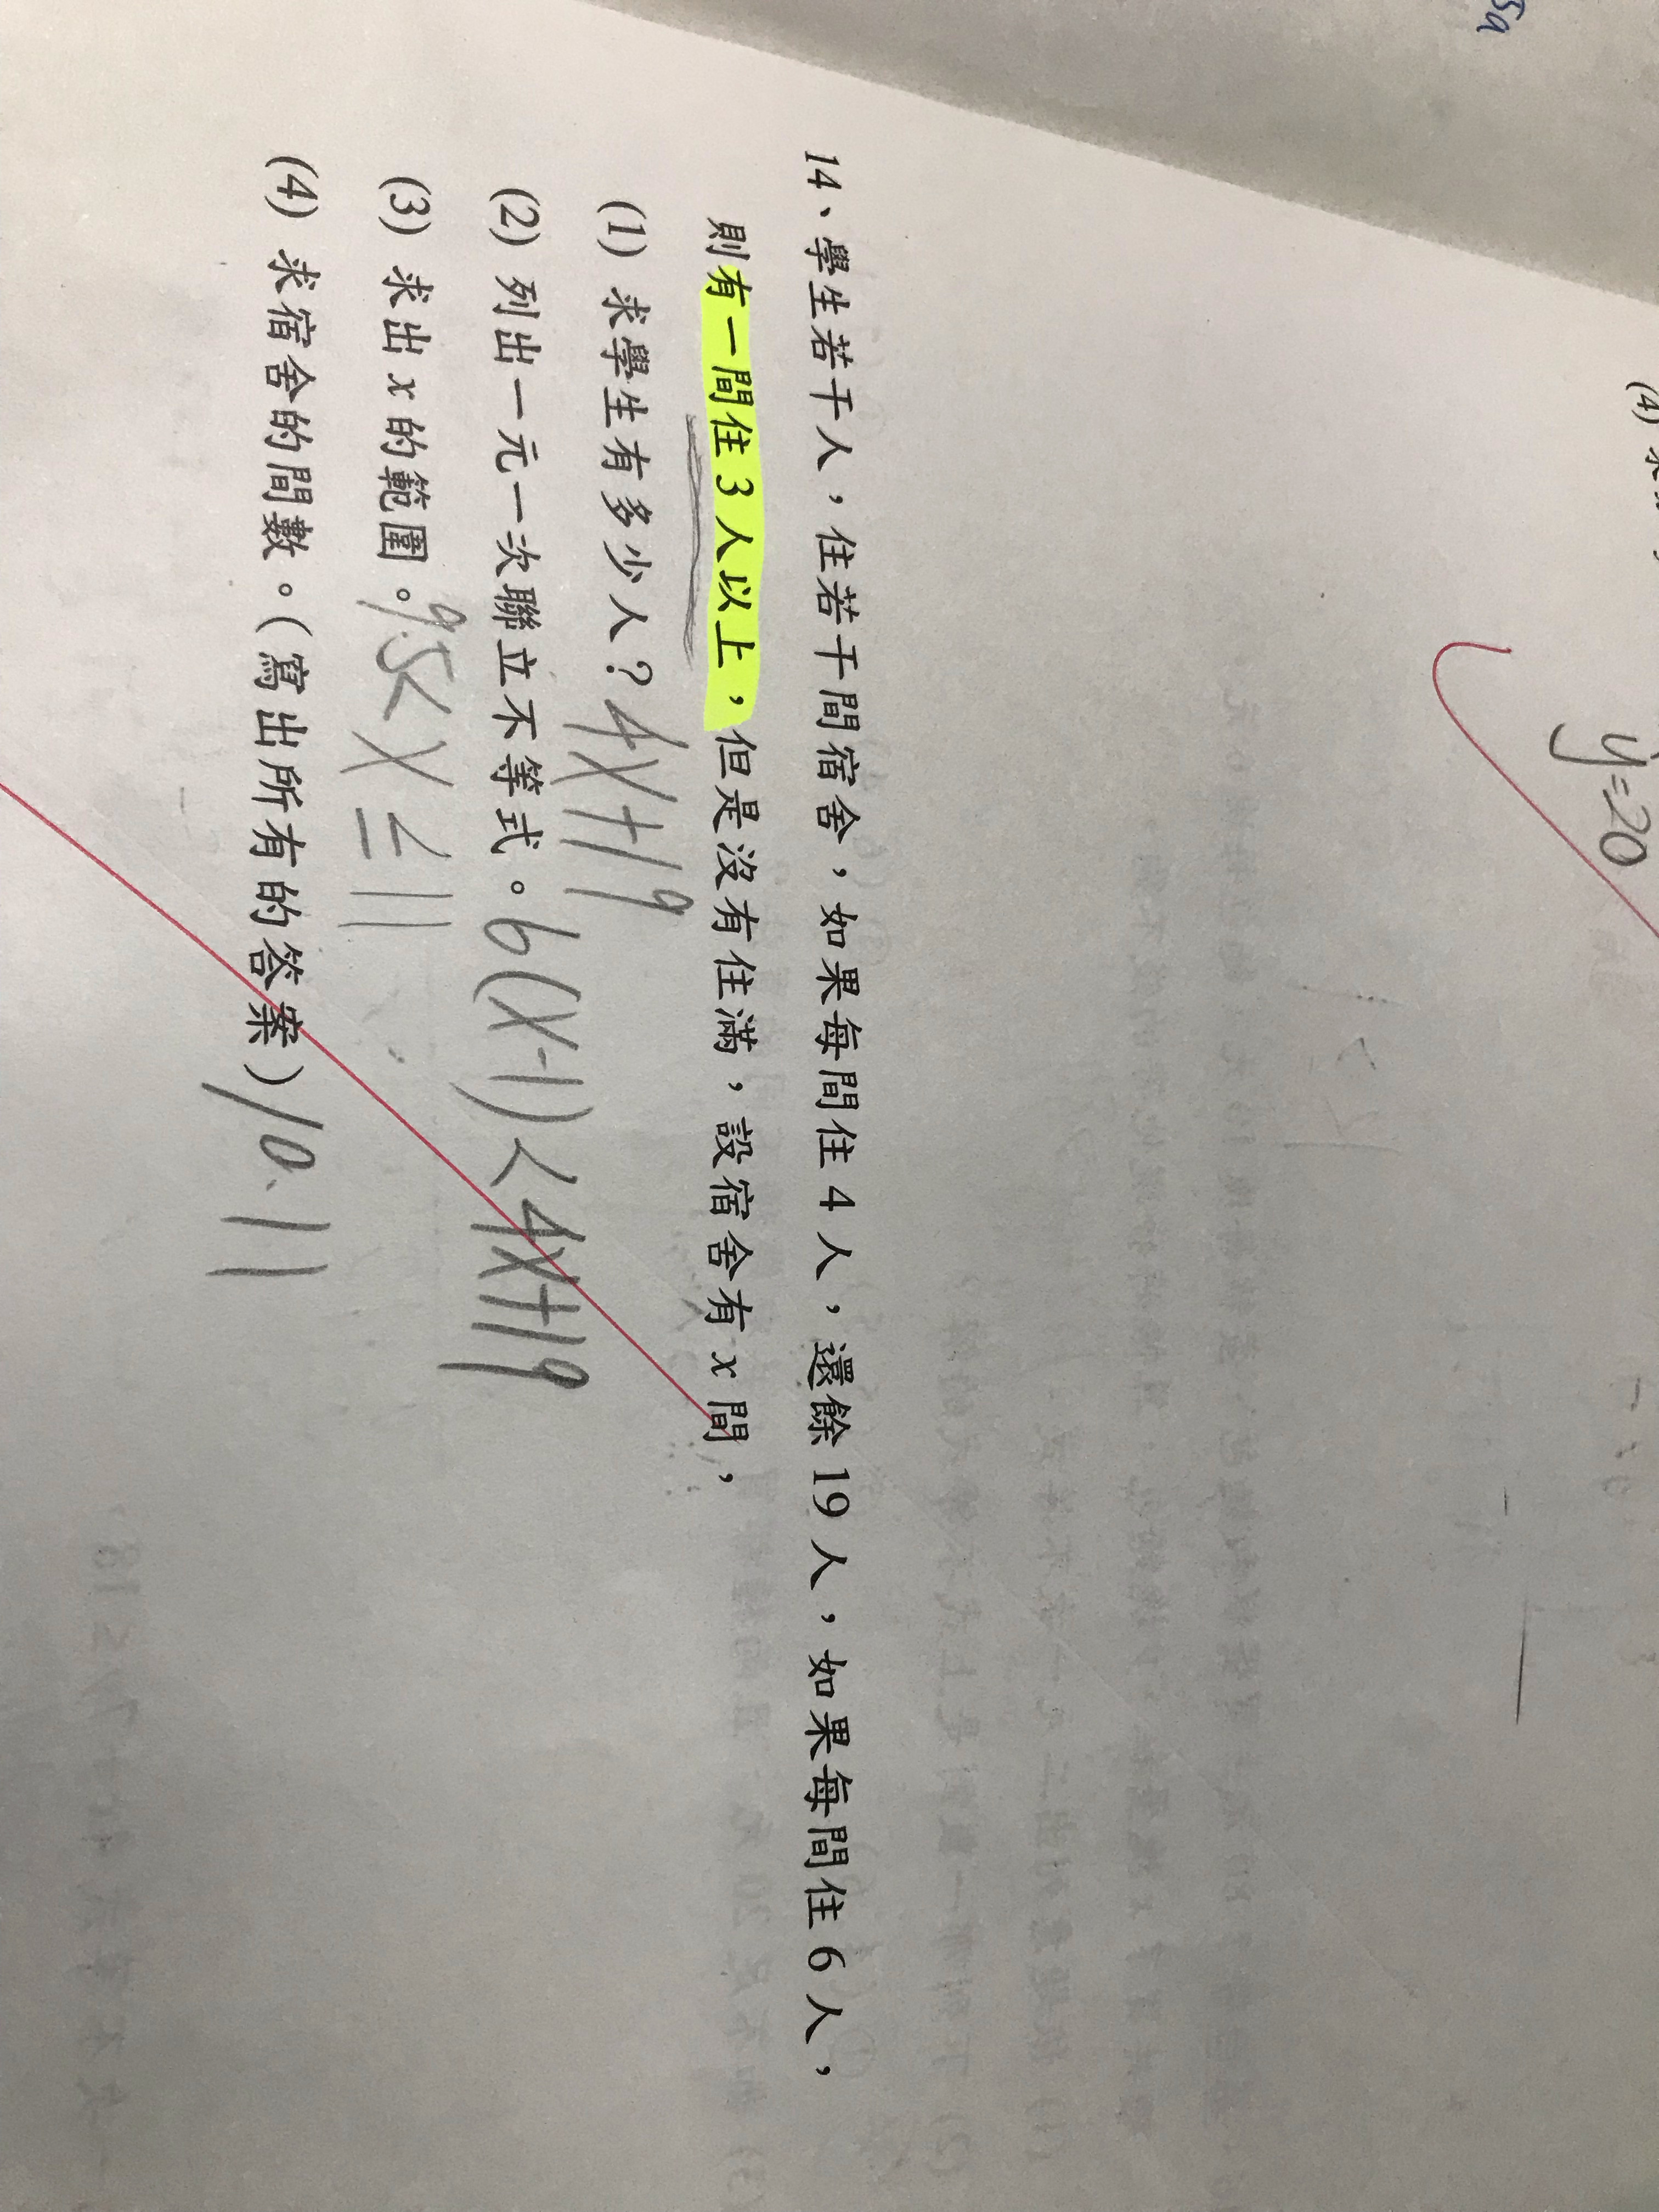 y=20
14、學生若干人，住若干間宿舍，如果每間住 4 人，還餘 19 人，如果每間住 6 人，
則有一間住 3 人以上，但是沒有住滿，設宿舍有 x 間，
(1) 求學生有多少人？4x+19
(2) 列出一元一次聯立不等式。6(x-1)<4x+19
(3) 求出 x 的範圍。9.5<x≤11
(4) 求宿舍的間數。(寫出所有的答案)10、11